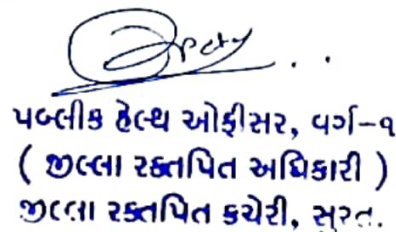 પબ્લીક હેલ્થ ઓફીસર, વર્ગ-૧
( જીલ્લા રક્તપિત અધિકારી )
જીલ્લા રક્તપિત કચેરી, સુરત.